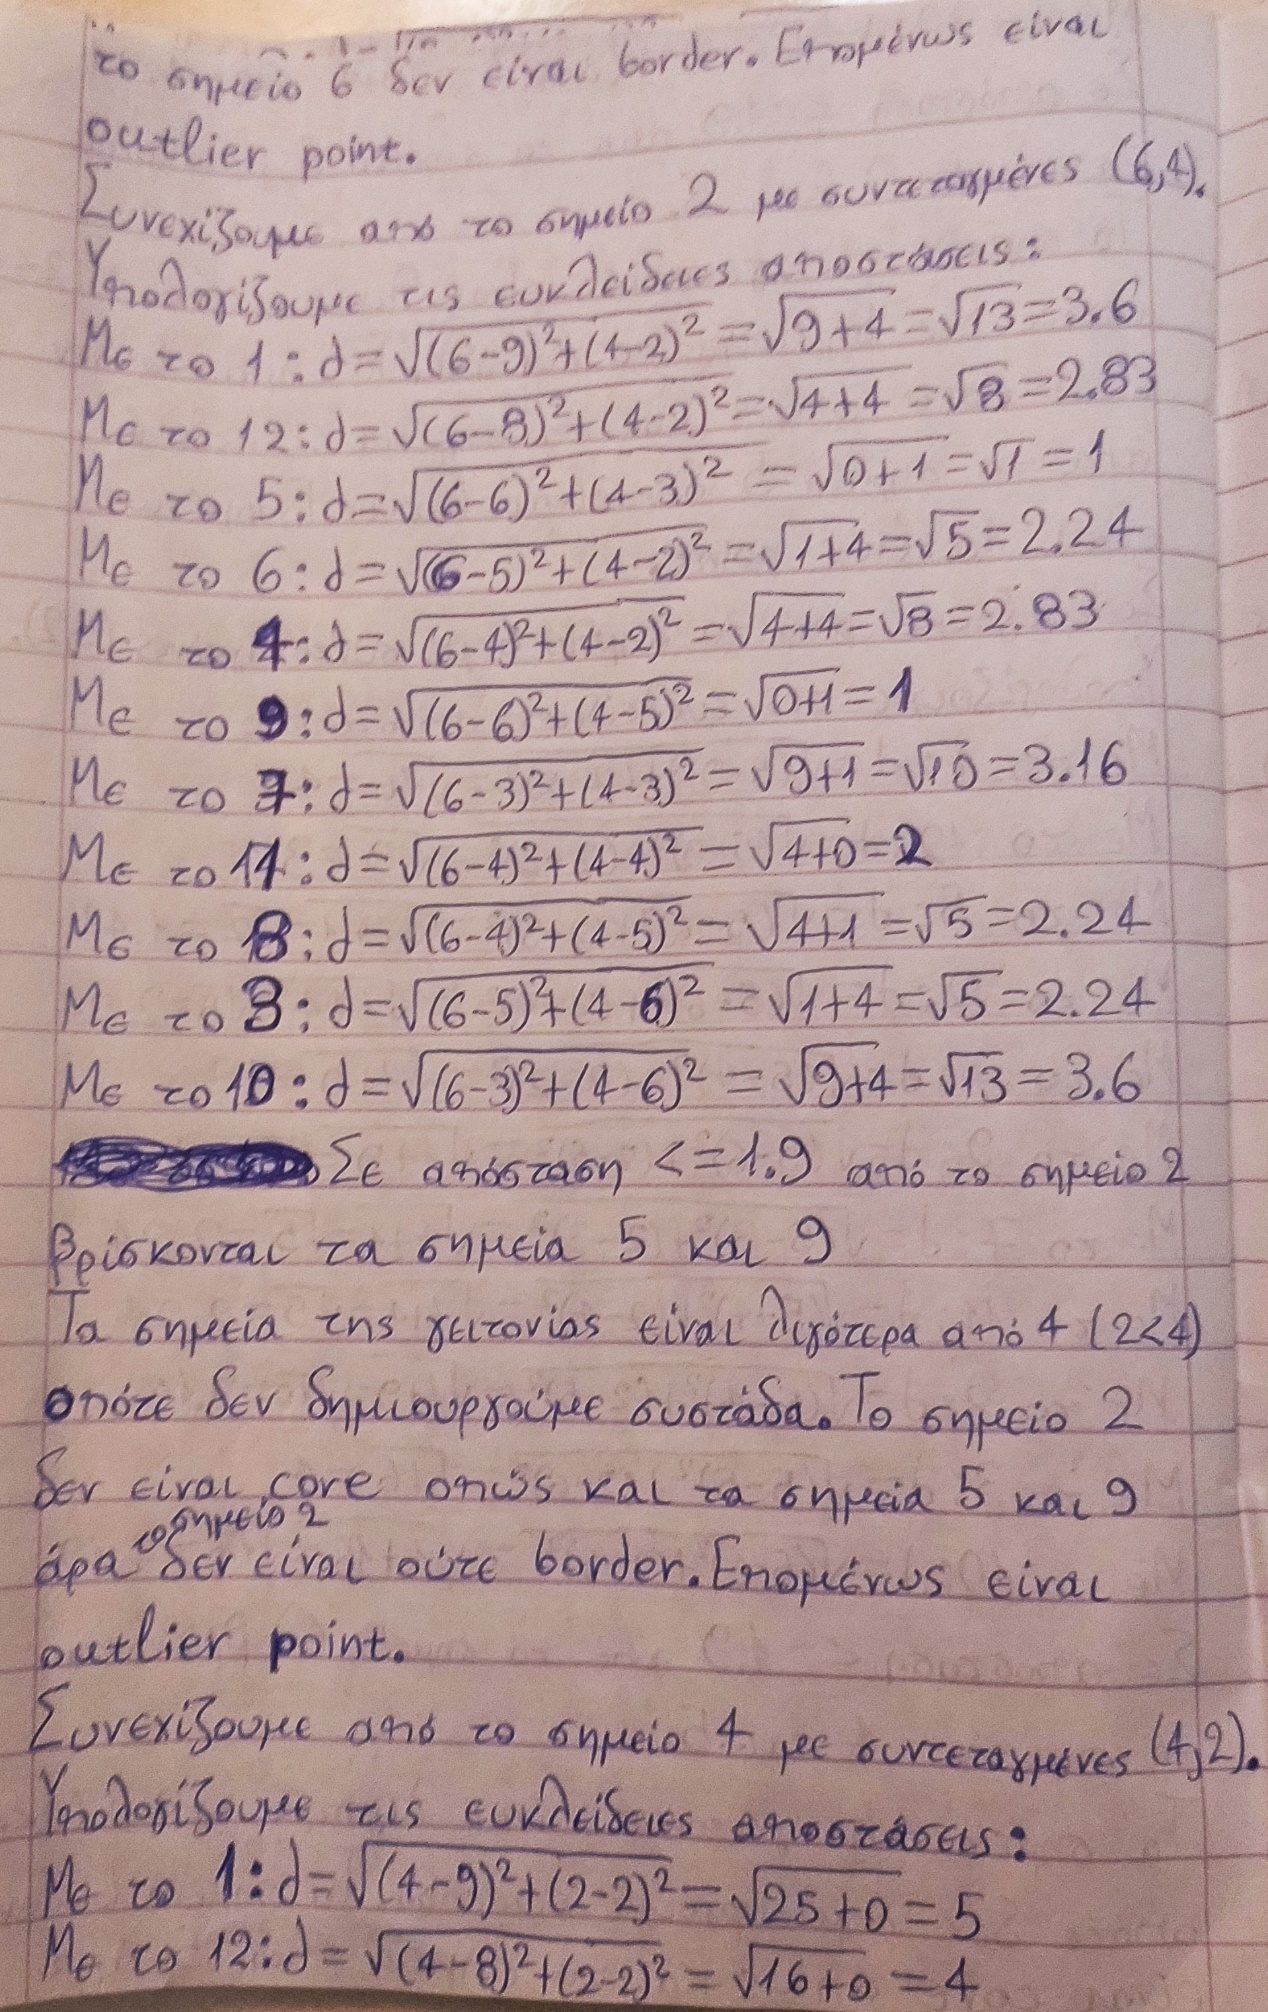 το σημείο 6 δεν είναι border. Επομένως είναι
outlier point.
Συνεχίζουμε από το σημείο 2 με συντεταγμένες (6,4).
Υπολογίζουμε τις ευκλείδειες αποστάσεις:
Με το 1: d=√(6-9)²+(4-2)² = √9+4 = √13 = 3.6
Με το 12: d=√(6-8)²+(4-2)² = √4+4 = √8 = 2.83
Με το 5: d=√(6-6)²+(4-3)² = √0+1 = √1 = 1
Με το 6: d=√(6-5)²+(4-2)² = √1+4 = √5 = 2.24
Με το 4: d=√(6-4)²+(4-2)² = √4+4 = √8 = 2.83
Με το 9: d=√(6-6)²+(4-5)² = √0+1 = 1
Με το 7: d=√(6-3)²+(4-3)² = √9+1 = √10 = 3.16
Με το 11: d=√(6-4)²+(4-4)² = √4+0 = 2
Με το 8: d=√(6-4)²+(4-5)² = √4+1 = √5 = 2.24
Με το 3: d=√(6-5)²+(4-6)² = √1+4 = √5 = 2.24
Με το 10: d=√(6-3)²+(4-6)² = √9+4 = √13 = 3.6
Σε απόσταση <=1.9 από το σημείο 2
βρίσκονται τα σημεία 5 και 9
Τα σημεία της γειτονίας είναι λιγότερα από 4 (2<4)
οπότε δεν δημιουργούμε συστάδα. Το σημείο 2
δεν είναι core οπώς και τα σημεία 5 και 9
το σημείο 2
άρα δεν είναι ούτε border. Επομένως είναι
outlier point.
Συνεχίζουμε από το σημείο 4 με συντεταγμένες (4,2).
Υπολογίζουμε τις ευκλείδειες αποστάσεις:
Με το 1: d=√(4-9)²+(2-2)² = √25+0 = 5
Με το 12: d=√(4-8)²+(2-2)² = √16+0 = 4